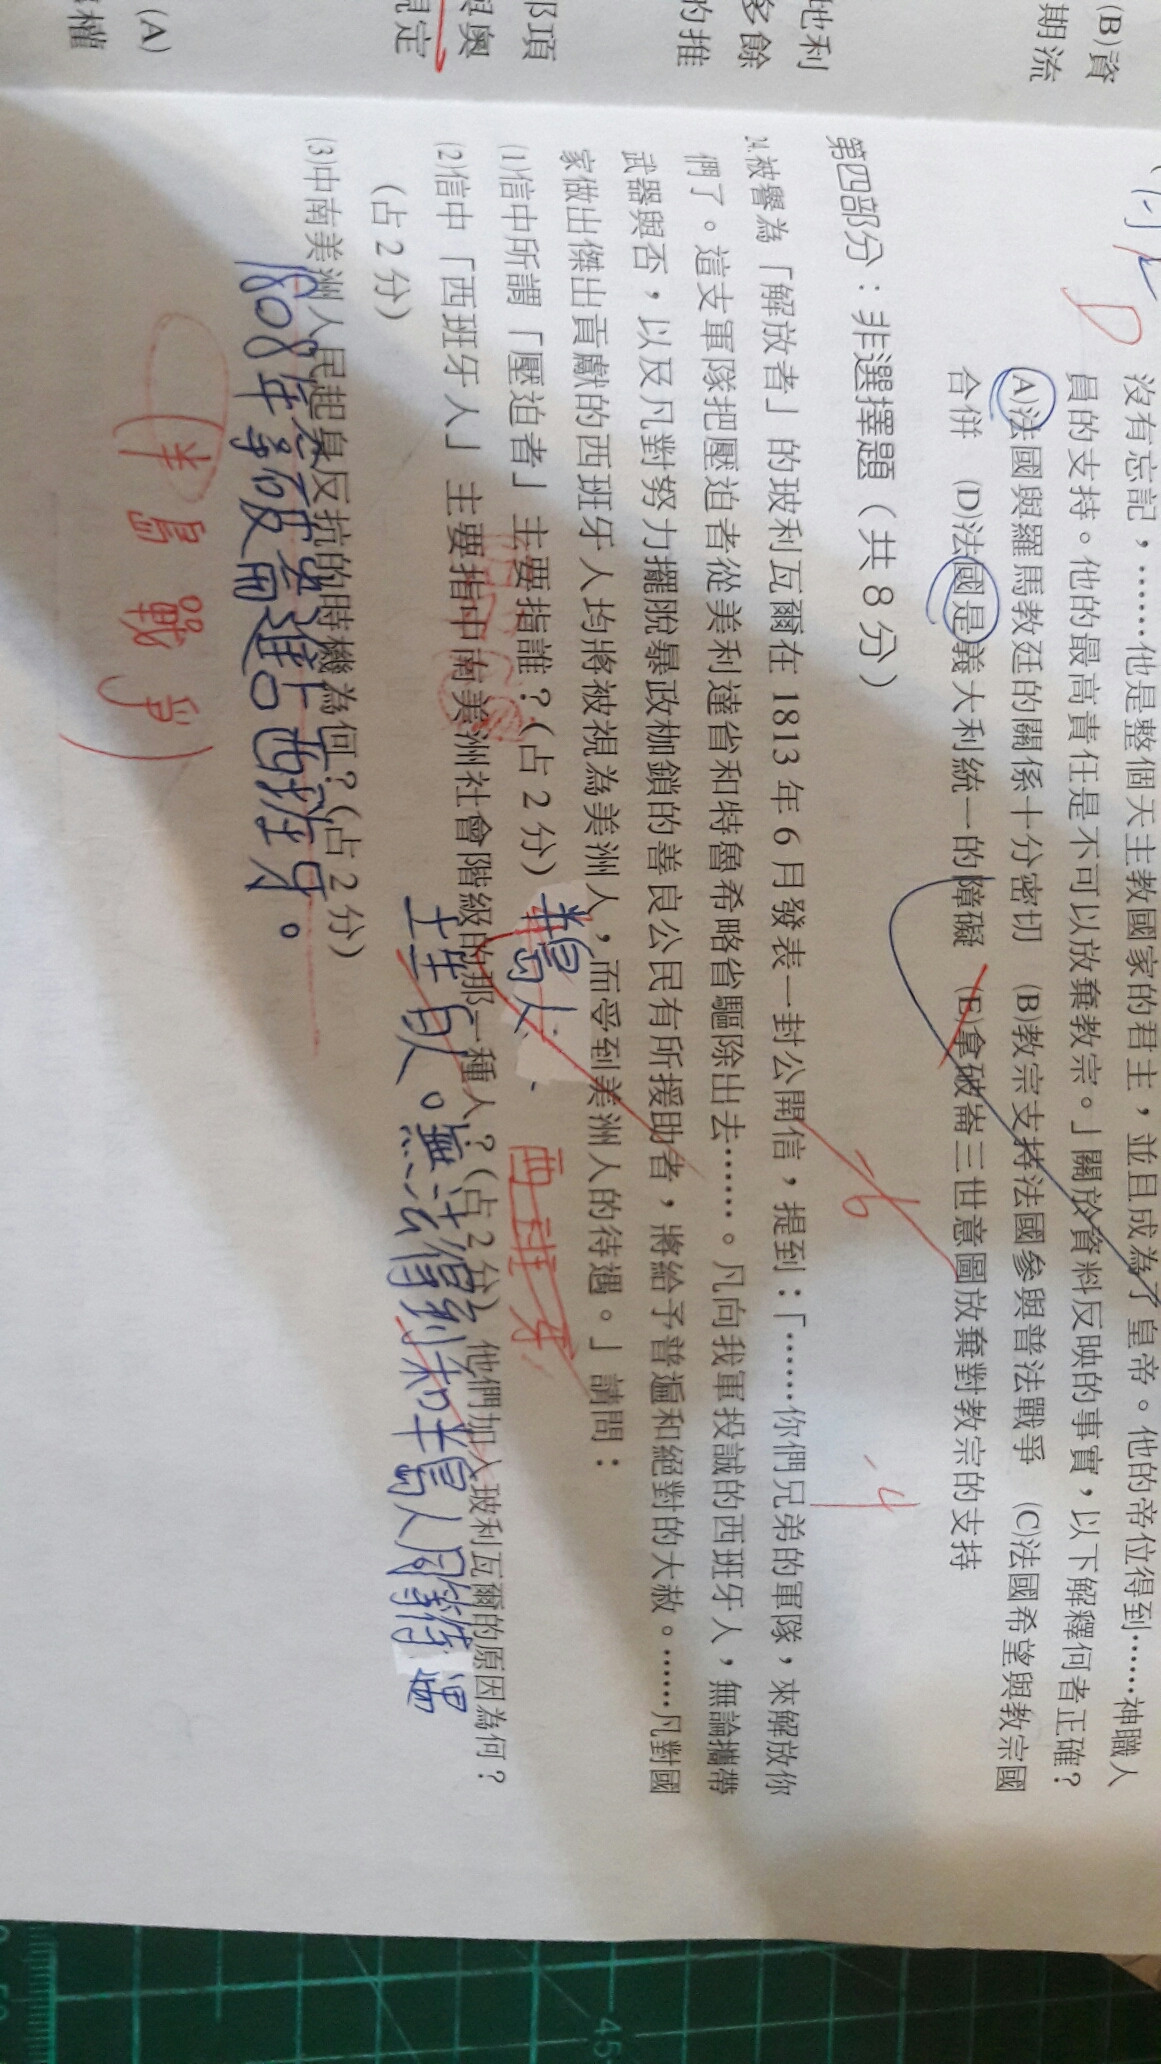 (B)資
期流
地利
多餘
的推
部項
與奧
規定
(A)
權
沒有忘記，……他是整個天主教國家的君主，並且成為了皇帝。他的帝位得到……神職人
員的支持。他的最高責任是不可以放棄教宗。」關於資料反映的事實，以下解釋何者正確？
(A)法國與羅馬教廷的關係十分密切 (B)教宗支持法國參與普法戰爭 (C)法國希望與教宗國
合併 (D)法國是義大利統一的障礙 (E)拿破崙三世意圖放棄對教宗的支持
-4
第四部分：非選擇題（共 8 分）
-6
24.被譽為「解放者」的玻利瓦爾在 1813 年 6 月發表一封公開信，提到：「……你們兄弟的軍隊，來解放你
們了。這支軍隊把壓迫者從美利達省和特魯希略省驅除出去……。凡向我軍投誠的西班牙人，無論攜帶
武器與否，以及凡對努力擺脫暴政枷鎖的善良公民有所援助者，將給予普遍和絕對的大赦。……凡對國
家做出傑出貢獻的西班牙人均將被視為美洲人，而受到美洲人的待遇。」請問：
(1)信中所謂「壓迫者」主要指誰？(占 2 分)
西班牙
(2)信中「西班牙人」主要指中南美洲社會階級的那一種人？(占 2 分) 他們加入玻利瓦爾的原因為何？
(占 2 分)
土生白人。無法得到和半島人同等待遇
(3)中南美洲人民起身反抗的時機為何？(占 2 分)
1808年拿破崙進占西班牙。
(半島戰爭)
45